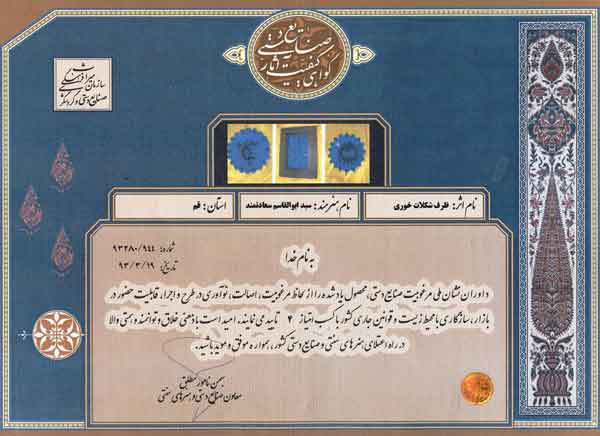 گواهی کیفیت آثار صنایع دستی
سازمان میراث فرهنگی
صنایع دستی و گردشگری
نام اثر: ظرف شکلات خوری
نام هنرمند: سید ابوالقاسم سعادتمند
استان: قم
به نام خدا
شماره: ۹۳۲۸۰/۹۴۴
تاریخ: ۹۳/۳/۱۹
داوران نشان ملی مرغوبیت صنایع دستی، محصول یاد شده را از لحاظ مرغوبیت، اصالت، نوآوری در طرح و اجرا، قابلیت حضور در
بازار، سازگاری با محیط زیست و قوانین جاری کشور با کسب امتیاز ۴ تایید می نمایند، امید است با ذهنی خلاق و توانمند و همتی والا
در راه اعتلای هنرهای سنتی و صنایع دستی کشور، همواره موفق و موید باشید.
بهمن نامور مطلق
معاون صنایع دستی و هنرهای سنتی